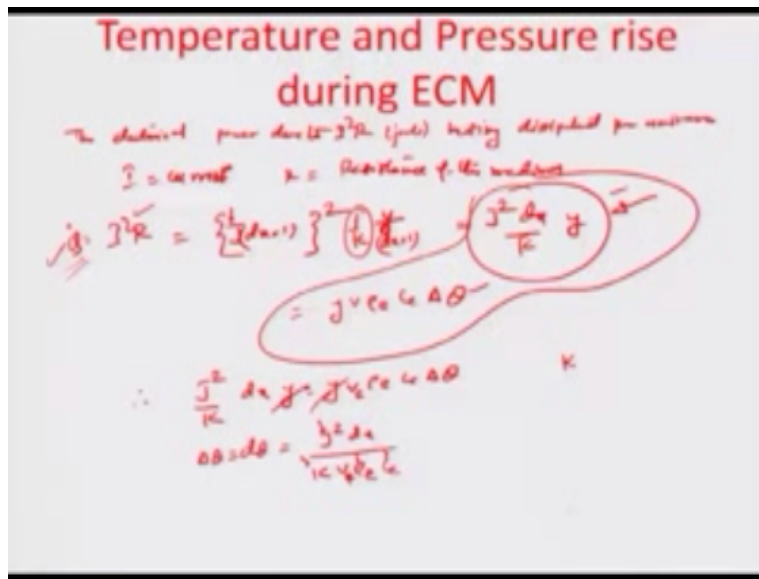 Temperature and Pressure rise
during ECM
The electrical power due to I²R (joule) heating dissipated per
I = current R = Resistance of the medium
I²R = {J(dx×1)}² (1/k) y/(dx×1) = J² dx/k y
= y v ρe ce Δθ
∴ J²/k dx y = y ve ρe ce Δθ K
Δθ = dθ = J² dx / k ve ρe ce